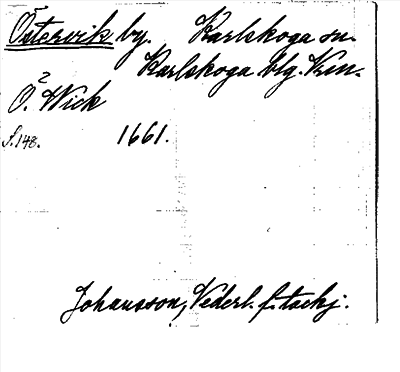 Östervik by. Karlskoga sn.
Karlskoga blg. Krm.
Ö. Wick
S. 148. 1661.
Johansson, Vederl. f. tackj.